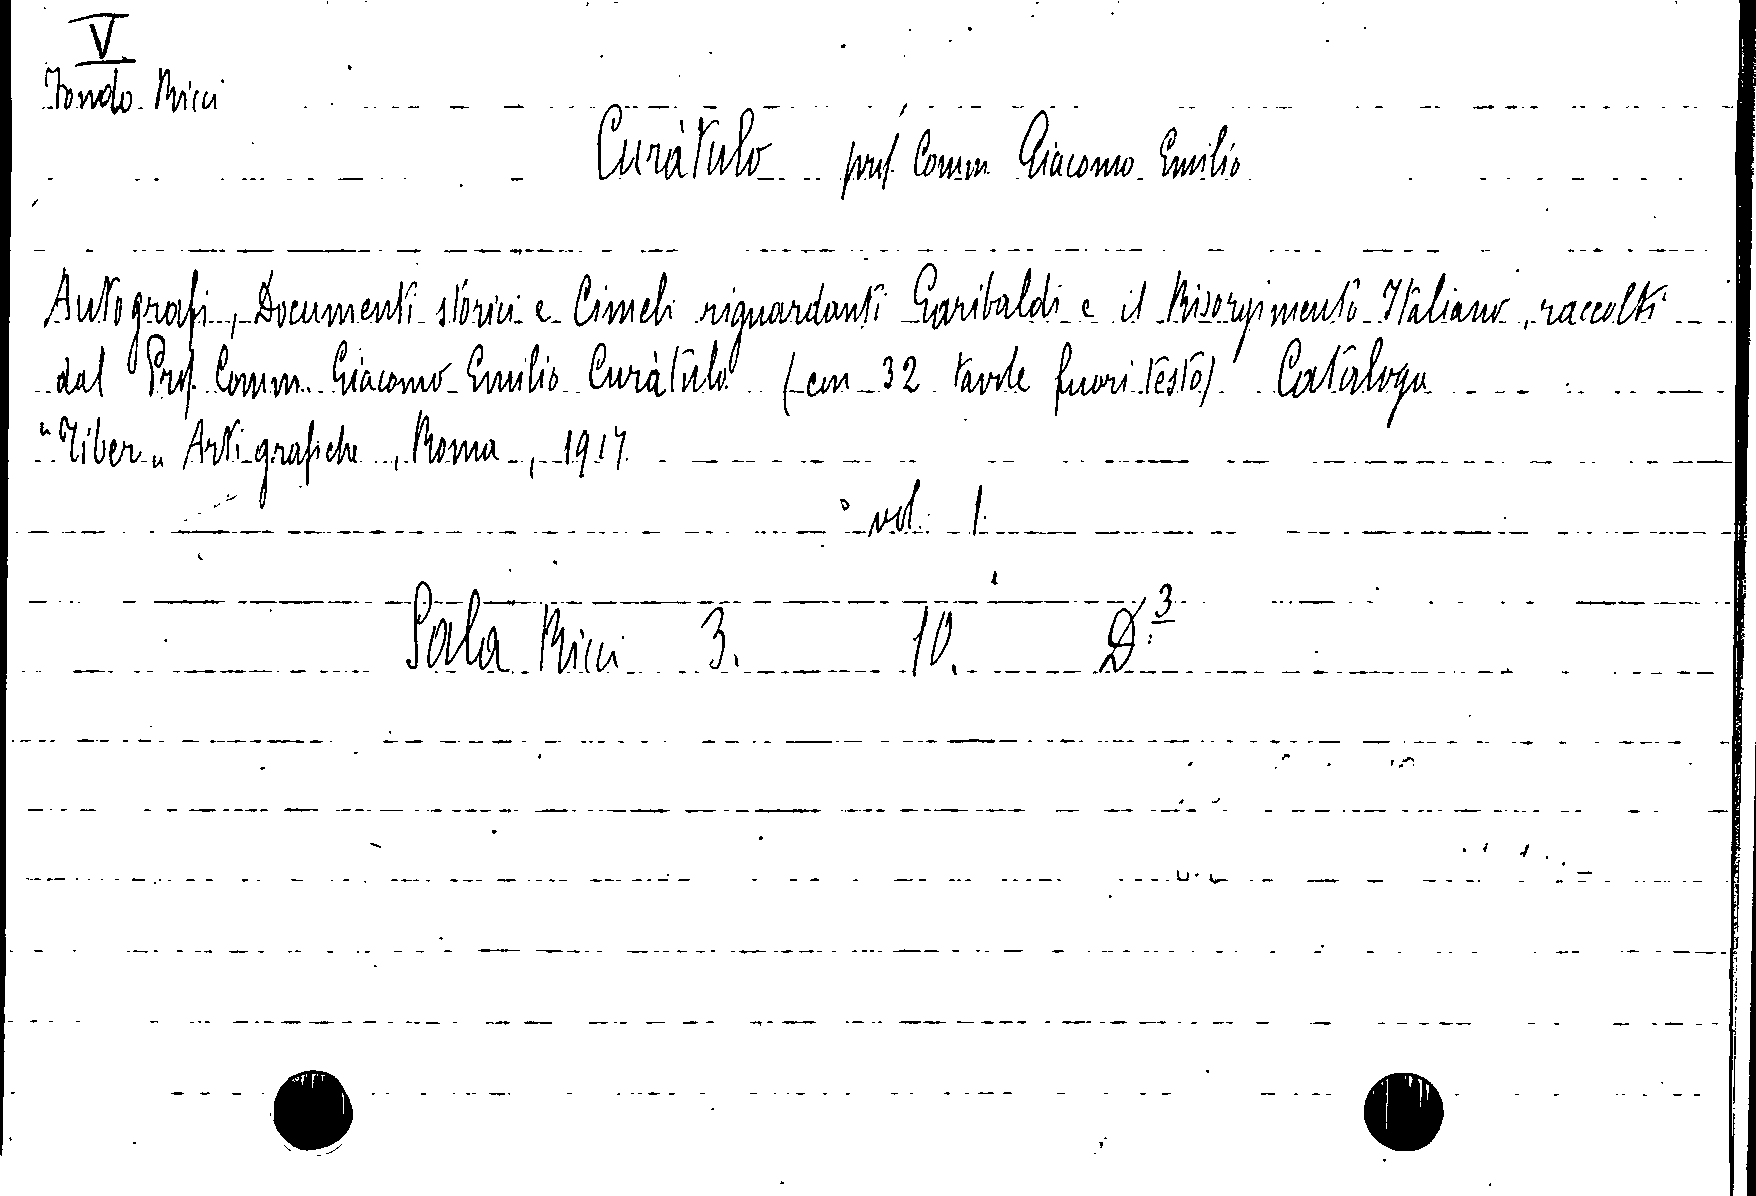 V.
Fondo Ricci
Curàtulo prof. Comm. Giacomo Emilio
Autografi, Documenti storici e Cimeli riguardanti Garibaldi e il Risorgimento Italiano, raccolti
dal Prof. Comm. Giacomo Emilio Curàtulo (con 32 tavole fuori testo). Catalogo
"Tiber" Arti grafiche, Roma, 1917.
vol. 1.
Sala Ricci 3. 10. D.3